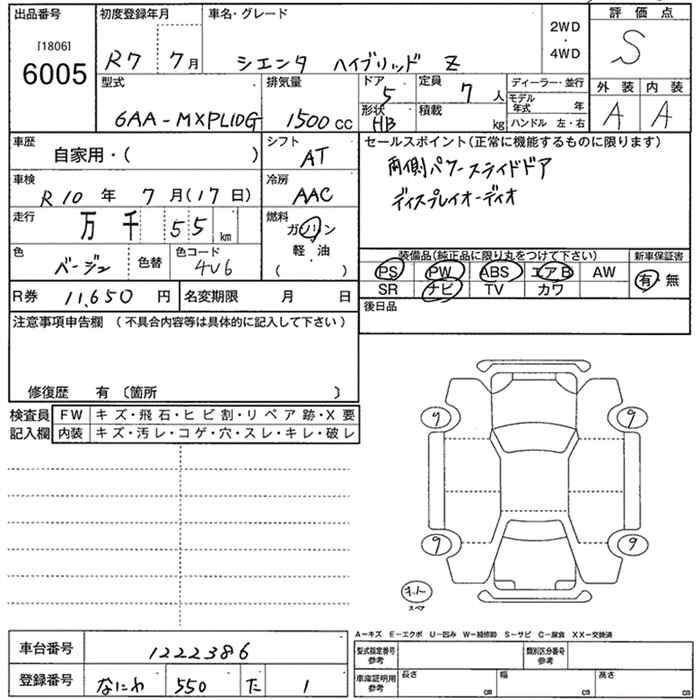 出品番号 初度登録年月 車名・グレード 評価点
[1806] 2WD・4WD
6005 R7 7月 シエンタ ハイブリッド Z S
型式 排気量 ドア 5 定員 7人 ディーラー・並行 外装 内装
モデル年式 年
6AA-MXPL10G 1500cc 形状 HB 積載 kg ハンドル 左・右 A A
車歴 シフト セールスポイント(正常に機能するものに限ります)
自家用・( ) AT 両側パワースライドドア
車検 冷房 ディスプレイオーディオ
R10年 7月(17日) AAC
走行 燃料
万 千 55 km ガソリン
軽・油
( )
色 色替 色コード 装備品(純正品に限り丸をつけて下さい) 新車保証書
ベージュ 4V6 PS PW ABS エアB AW 有・無
SR ナビ TV カワ
R券 11,650円 名変期限 月 日 後日品
注意事項申告欄 (不具合内容等は具体的に記入して下さい)
修復歴 有 〔箇所 〕
検査員 FW キズ・飛石・ヒビ割・リペア跡・X要
記入欄 内装 キズ・汚レ・コゲ・穴・スレ・キレ・破レ
9 9
9 9
キット
スペア
A-キズ E-エクボ U-凹み W-補修跡 S-サビ C-腐食 XX-交換済
車台番号 1222386 型式指定番号 参考 類別区分番号 参考
登録番号 なにわ 550 た 1 車庫証明用 参考 長さ cm 幅 cm 高さ cm